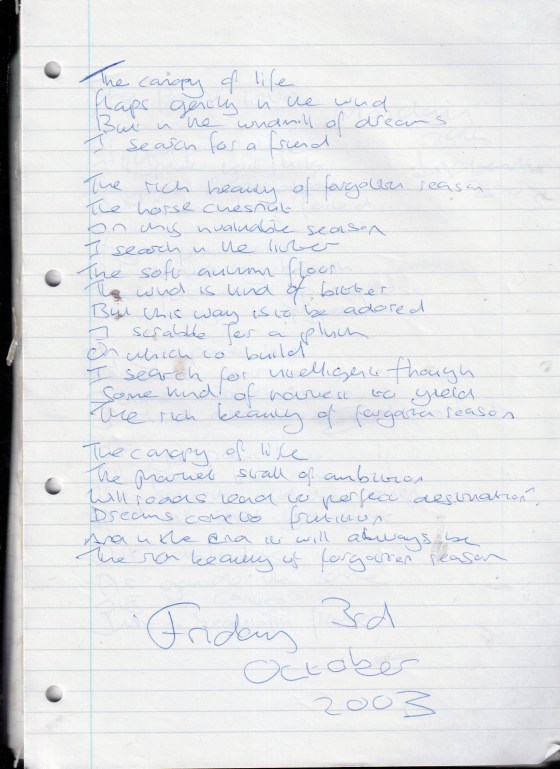 The canopy of life
flaps gently in the wind
But in the windmill of dreams
I search for a friend
The rich beauty of forgotten reason
The horse chestnut
On this invaluable season
I search in the litter
The soft autumn floor
The wind is kind of bitter
But this way is to be adored
I scrabble for a
On which to build
I search for intelligent though
Some kind of harvest to yield
The rich beauty of forgotten reason
The canopy of life
The market stall of ambition
Will roads lead to perfect destination?
Dreams come to fruition
And in the end it will always be
The rich beauty of forgotten reason
Friday 3rd
October
2003